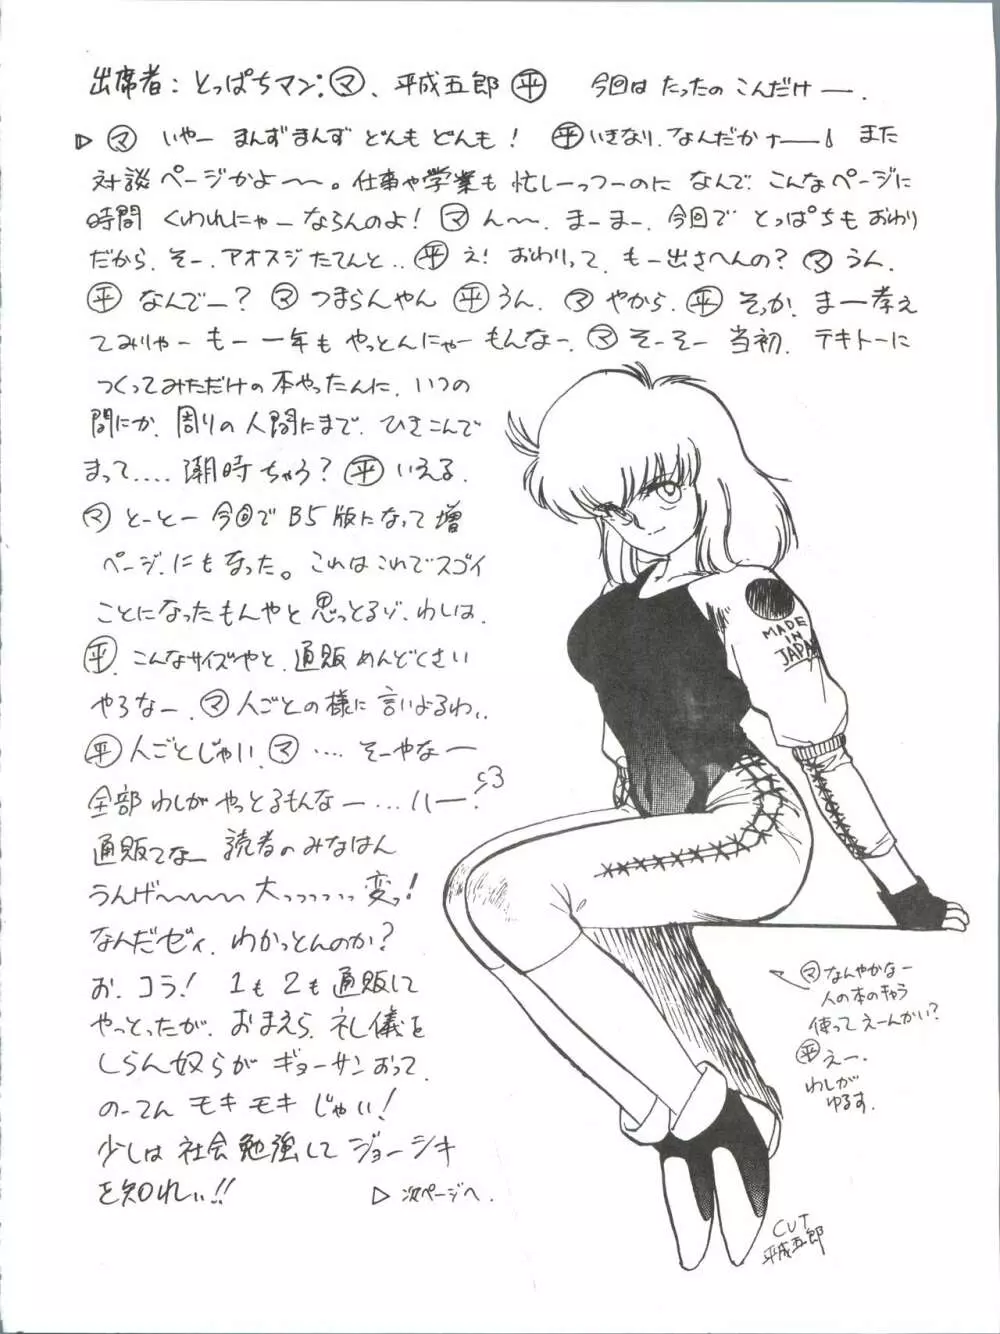 出席者:とっぱちマン:㋮、平成五郎㊉ 今回は たったの こんだけー.
▷ ㋮ いやー まんずまんず どんも どんも! ㊉いきなり、なんだかナー! また
対談ページかよ〜〜。仕事や学業も忙しーっつーのに なんで、こんなページに
時間 くわれにゃーならんのよ! ㋮ ん〜〜、まーまー、今回で とっぱちもおわり
だから、そー、アオスジたてんと.. ㊉ え! おわりって、もー出さへんの? ㋮ うん、
㊉ なんでー? ㋮ つまらんやん ㊉うん、㋮ やから、㊉ そっか、まー考え
てみりゃー もー 一年も やっとんにゃーもんなー、㋮ そーそー 当初、テキトーに
つくってみただけの本やったんに、いつの
間にか、周りの人間にまで、ひきこんで
まって.... 潮時ちゃう? ㊉ いえる.
㋮ とーとー今回で B5版になって増
ページ、にもなった。これはこれでスゴイ
ことになったもんやと、思っとるゾ、わしは、
㊉、こんなサイズやと、通販めんどくさい
やろなー、㋮人ごとの様に言いよるわい、
㊉人ごとじゃい、㋮ .... そーやなー
全部わしがやっとるもんなー...ハー
通販てなー 読者のみなはん
うんげ〜〜〜〜大っっっっっ変っ!
なんだゼィ、わかっとんのか?
お、コラ! 1も2も通販して
やっとったが、おまえら、礼儀を
しらん奴らが ギョーサンおって、
のーてん モキモキじゃい!
少しは社会勉強して ジョーシキ
を知れぃ!!
▷ 次ページへ.
MADE
IN
JAPAN
㋮なんやかなー
人の本のキャラ
使ってえーんかい?
㊉えー、
わしが
ゆるす.
CUT
平成五郎